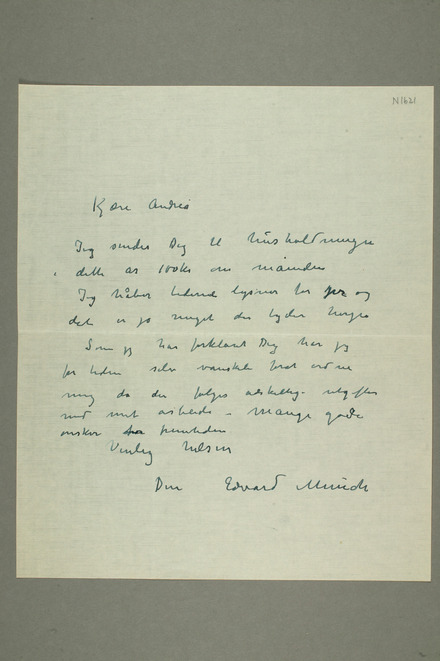 N1621
Kjære Andrea
Jeg sender Dig til husholdningen
i dette år 100kr om måneden
Jeg håber tiderne lysner for og
det er jo meget der tyder
Som jeg har forklaret Dig har jeg
for tiden selv vanskeligt for at ordne
mig da der følger adskillige utgifter
med mit arbeide – Mange gode
ønsker for fremtiden
Venlig hilsen
Din Edvard Munch